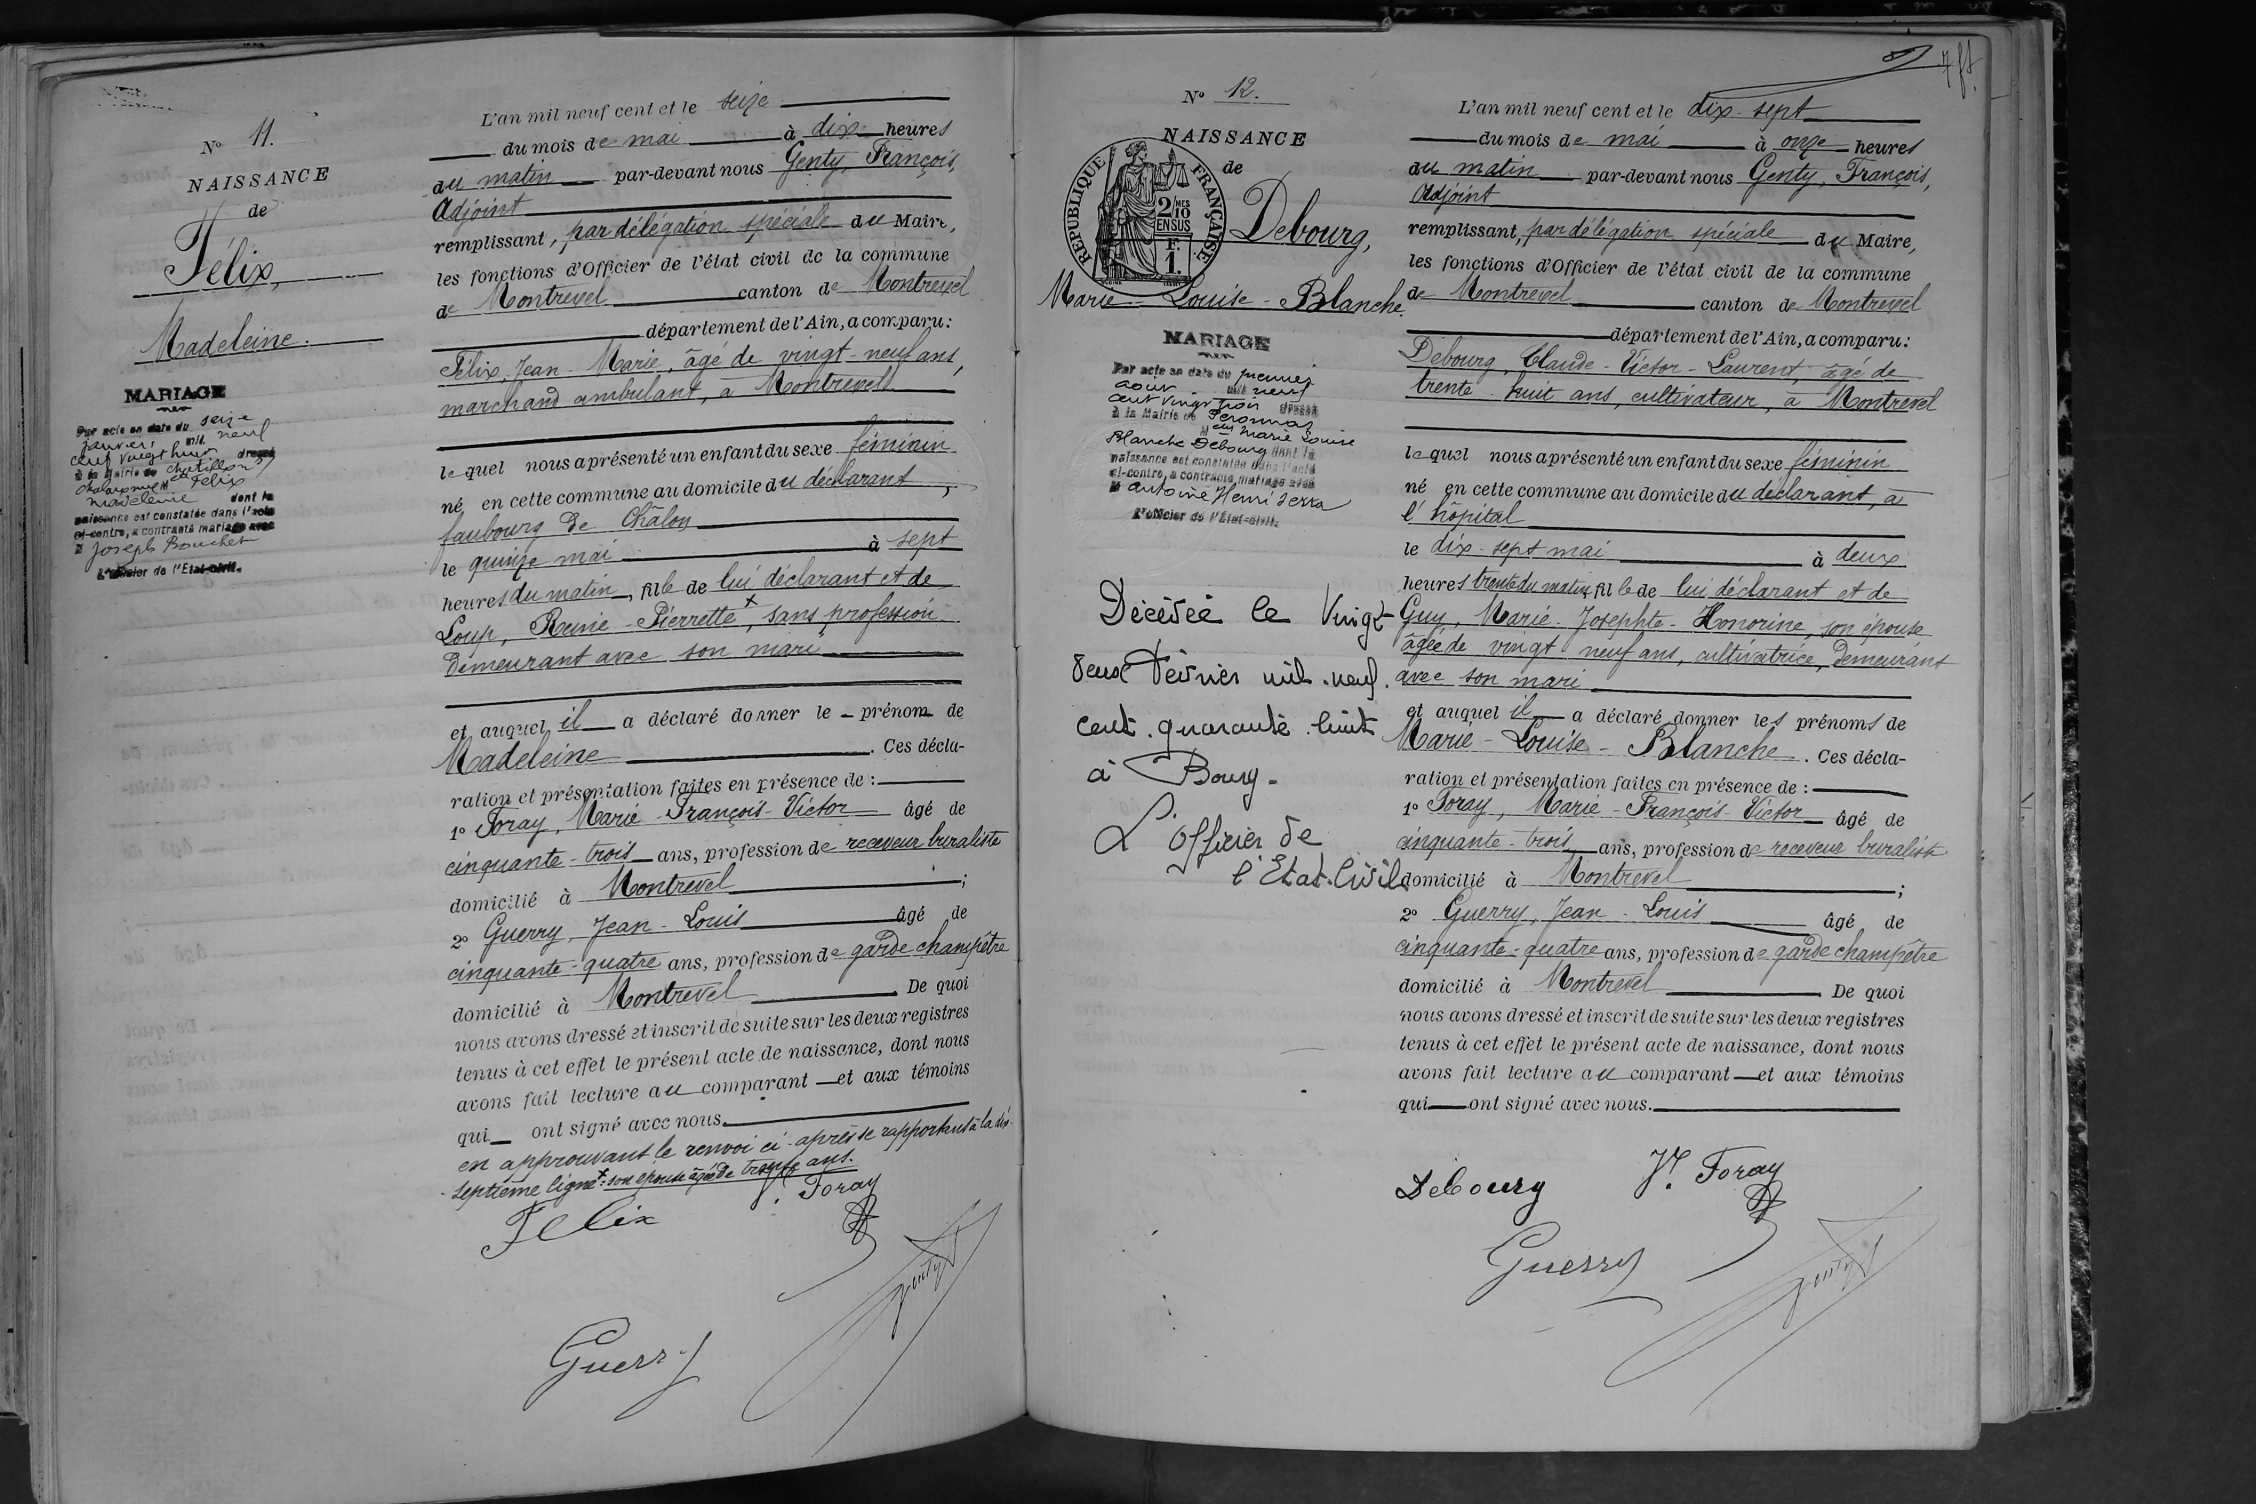 N° 11.
NAISSANCE
de
Félix,
Madeleine.
MARIAGE
Par acte en date du seize
janvier mil neuf
cent vingt huit dressé
à la Mairie de Chatillon s/
Chalaronne Melle Félix
Madeleine dont la
naissance est constatée dans l'acte
ci-contre, a contracté mariage avec
M Joseph Bouchet
L'officier de l'Etat-civil.
L'an mil neuf cent et le seize
du mois de mai à dix heures
du matin par-devant nous Genty, François,
Adjoint
remplissant, par délégation spéciale du Maire,
les fonctions d'Officier de l'état civil de la commune
de Montrevel canton de Montrevel
département de l'Ain, a comparu:
Félix, Jean-Marie, âgé de vingt-neuf ans,
marchand ambulant, à Montrevel
lequel nous a présenté un enfant du sexe féminin
né en cette commune au domicile du déclarant,
faubourg de Châlon
le quinze mai à sept
heures du matin, fille de lui déclarant et de
Loup, Reine-Pierrette x, sans profession
demeurant avec son mari
et auquel il a déclaré donner le - prénom de
Madeleine. Ces décla-
ration et présentation faites en présence de:
1° Foray, Marie-François-Victor âgé de
cinquante-trois ans, profession de receveur buraliste
domicilié à Montrevel;
2° Guerry, Jean-Louis âgé de
cinquante-quatre ans, profession de garde champêtre
domicilié à Montrevel. De quoi
nous avons dressé et inscrit de suite sur les deux registres
tenus à cet effet le présent acte de naissance, dont nous
avons fait lecture au comparant et aux témoins
qui ont signé avec nous.
en approuvant le renvoi ci-après se rapportant à la dix-
septième ligne x: son épouse âgée de trente ans.
Felix
Vr. Foray
Genty
Guerry
N° 12.
NAISSANCE
de
REPUBLIQUE FRANÇAISE
2/10 MES
EN SUS
F.
1.
Debourg,
Marie-Louise-Blanche.
MARIAGE
Par acte en date du premier
aout mil neuf
cent vingt trois dressé
à la Mairie de Peronnas
Melle Marie Louise
Blanche Debourg dont la
naissance est constatée dans l'acte
ci-contre, a contracté mariage avec
M Antoine Henri Serra
L'officier de l'Etat-civil.
Décédée le vingt
deux Février mil-neuf.
cent.quarante.huit
à Bourg-
L'Officier de
l'Etat-Civil
L'an mil neuf cent et le dix-sept
du mois de mai à onze heures
du matin par-devant nous Genty, François,
Adjoint
remplissant, par délégation spéciale du Maire,
les fonctions d'Officier de l'état civil de la commune
de Montrevel canton de Montrevel
département de l'Ain, a comparu:
Debourg, Claude-Victor-Laurent, âgé de
trente-huit ans, cultivateur, à Montrevel
lequel nous a présenté un enfant du sexe féminin
né en cette commune au domicile du déclarant, à
l'hôpital
le dix-sept mai à deux
heures trente du matin, fille de lui déclarant et de
Guy, Marie-Josephte-Honorine, son épouse
âgée de vingt neuf ans, cultivatrice, demeurant
avec son mari
et auquel il a déclaré donner les prénoms de
Marie-Louise-Blanche. Ces décla-
ration et présentation faites en présence de:
1° Foray, Marie-François-Victor âgé de
cinquante-trois ans, profession de receveur buraliste
domicilié à Montrevel;
2° Guerry, Jean-Louis âgé de
cinquante-quatre ans, profession de garde champêtre
domicilié à Montrevel. De quoi
nous avons dressé et inscrit de suite sur les deux registres
tenus à cet effet le présent acte de naissance, dont nous
avons fait lecture au comparant et aux témoins
qui ont signé avec nous.
Debourg
Vr. Foray
Guerry
Genty